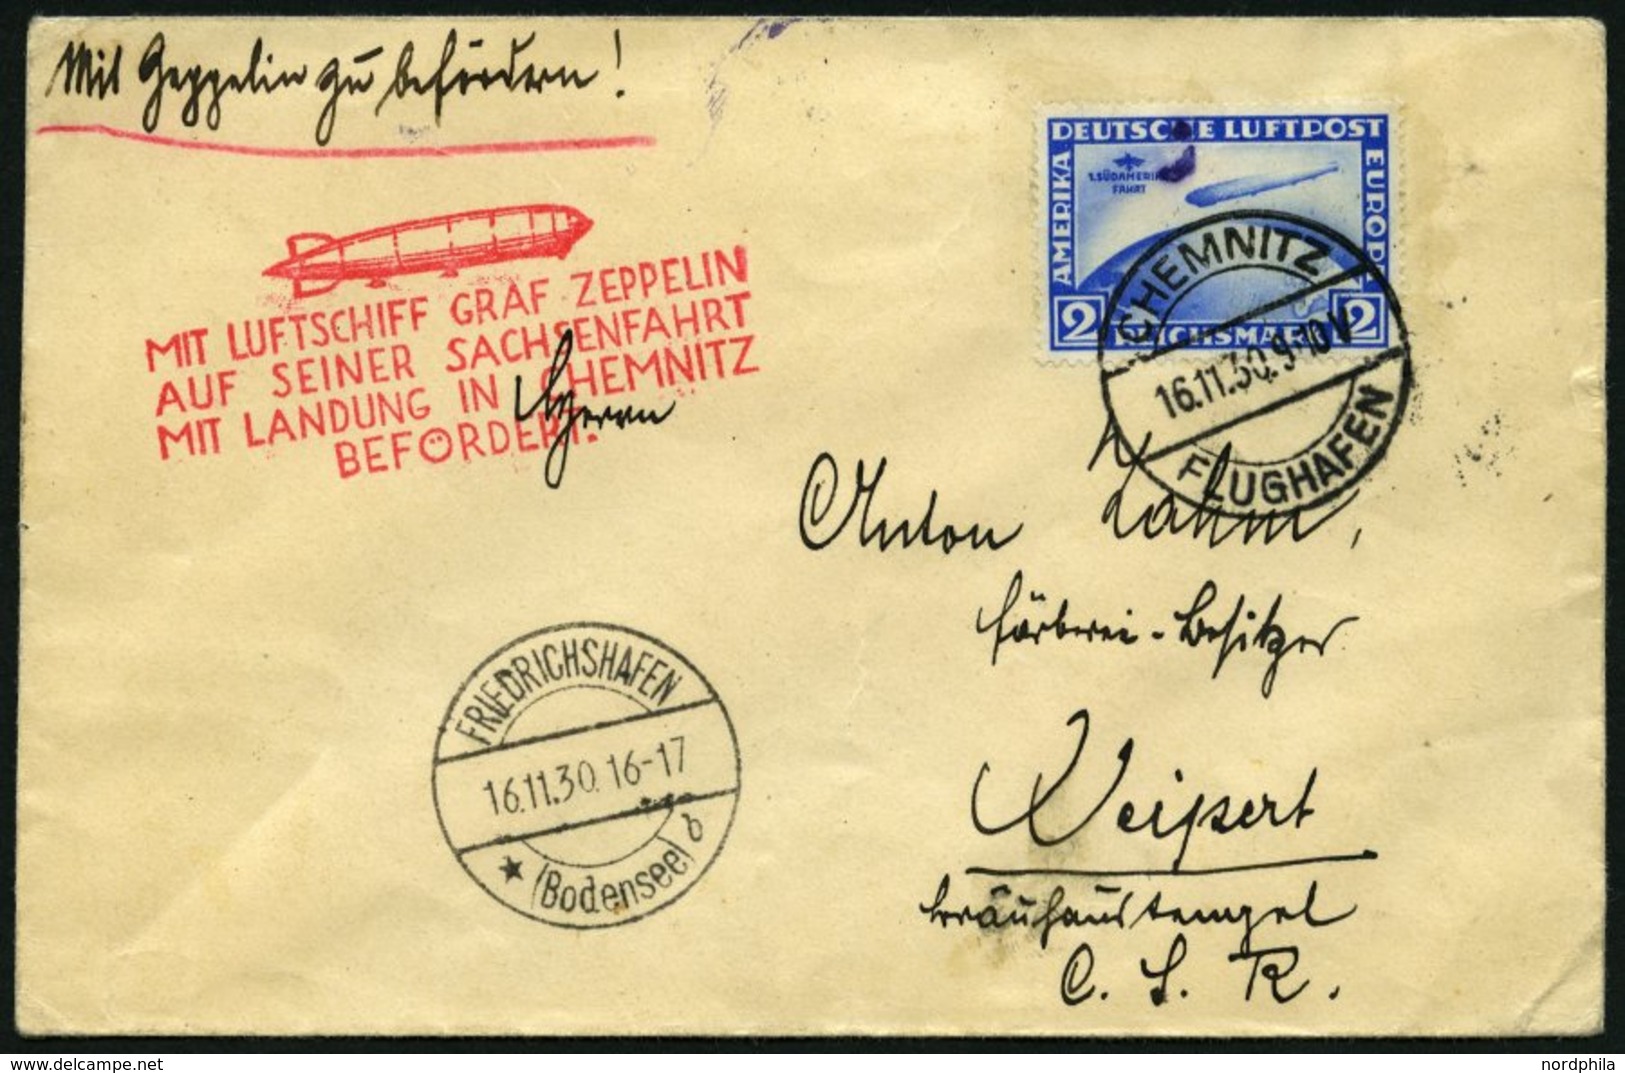 Mit Zeppelin zu befördern!
MIT LUFTSCHIFF GRAF ZEPPELIN
AUF SEINER SACHSENFAHRT
MIT LANDUNG IN CHEMNITZ
BEFÖRDERT.
DEUTSCHE LUFTPOST
AMERIKA
EUROPA
1. SÜDAMERIKA
FAHRT
2 REICHSMARK 2
CHEMNITZ
16.11.30. 9-10 V
FLUGHAFEN
Herrn
Anton
Färberei-Besitzer
Weipert
C. S. R.
FRIEDRICHSHAFEN
16.11.30. 16-17
(Bodensee) b
hipstamp.com/store/nordphila